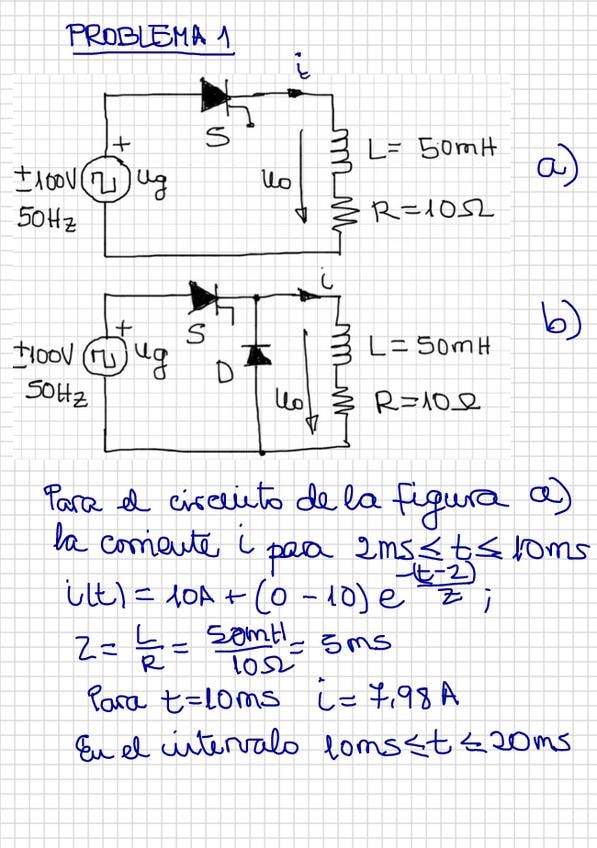 PROBLEMA 1
i
S
L= 50mH
a)
+
±100V
ug
uo
50Hz
R=10Ω
i
b)
+
S
±100V
ug
D
L=50mH
50Hz
uo
R=10Ω
Para el circuito de la figura a)
la corriente i para 2ms≤t≤10ms
i(t) = 10A + (0-10) e^-(t-2)/z ;
Z = L/R = 50mH/10Ω = 5ms
Para t=10ms i=7,98A
En el intervalo 10ms≤t≤20ms